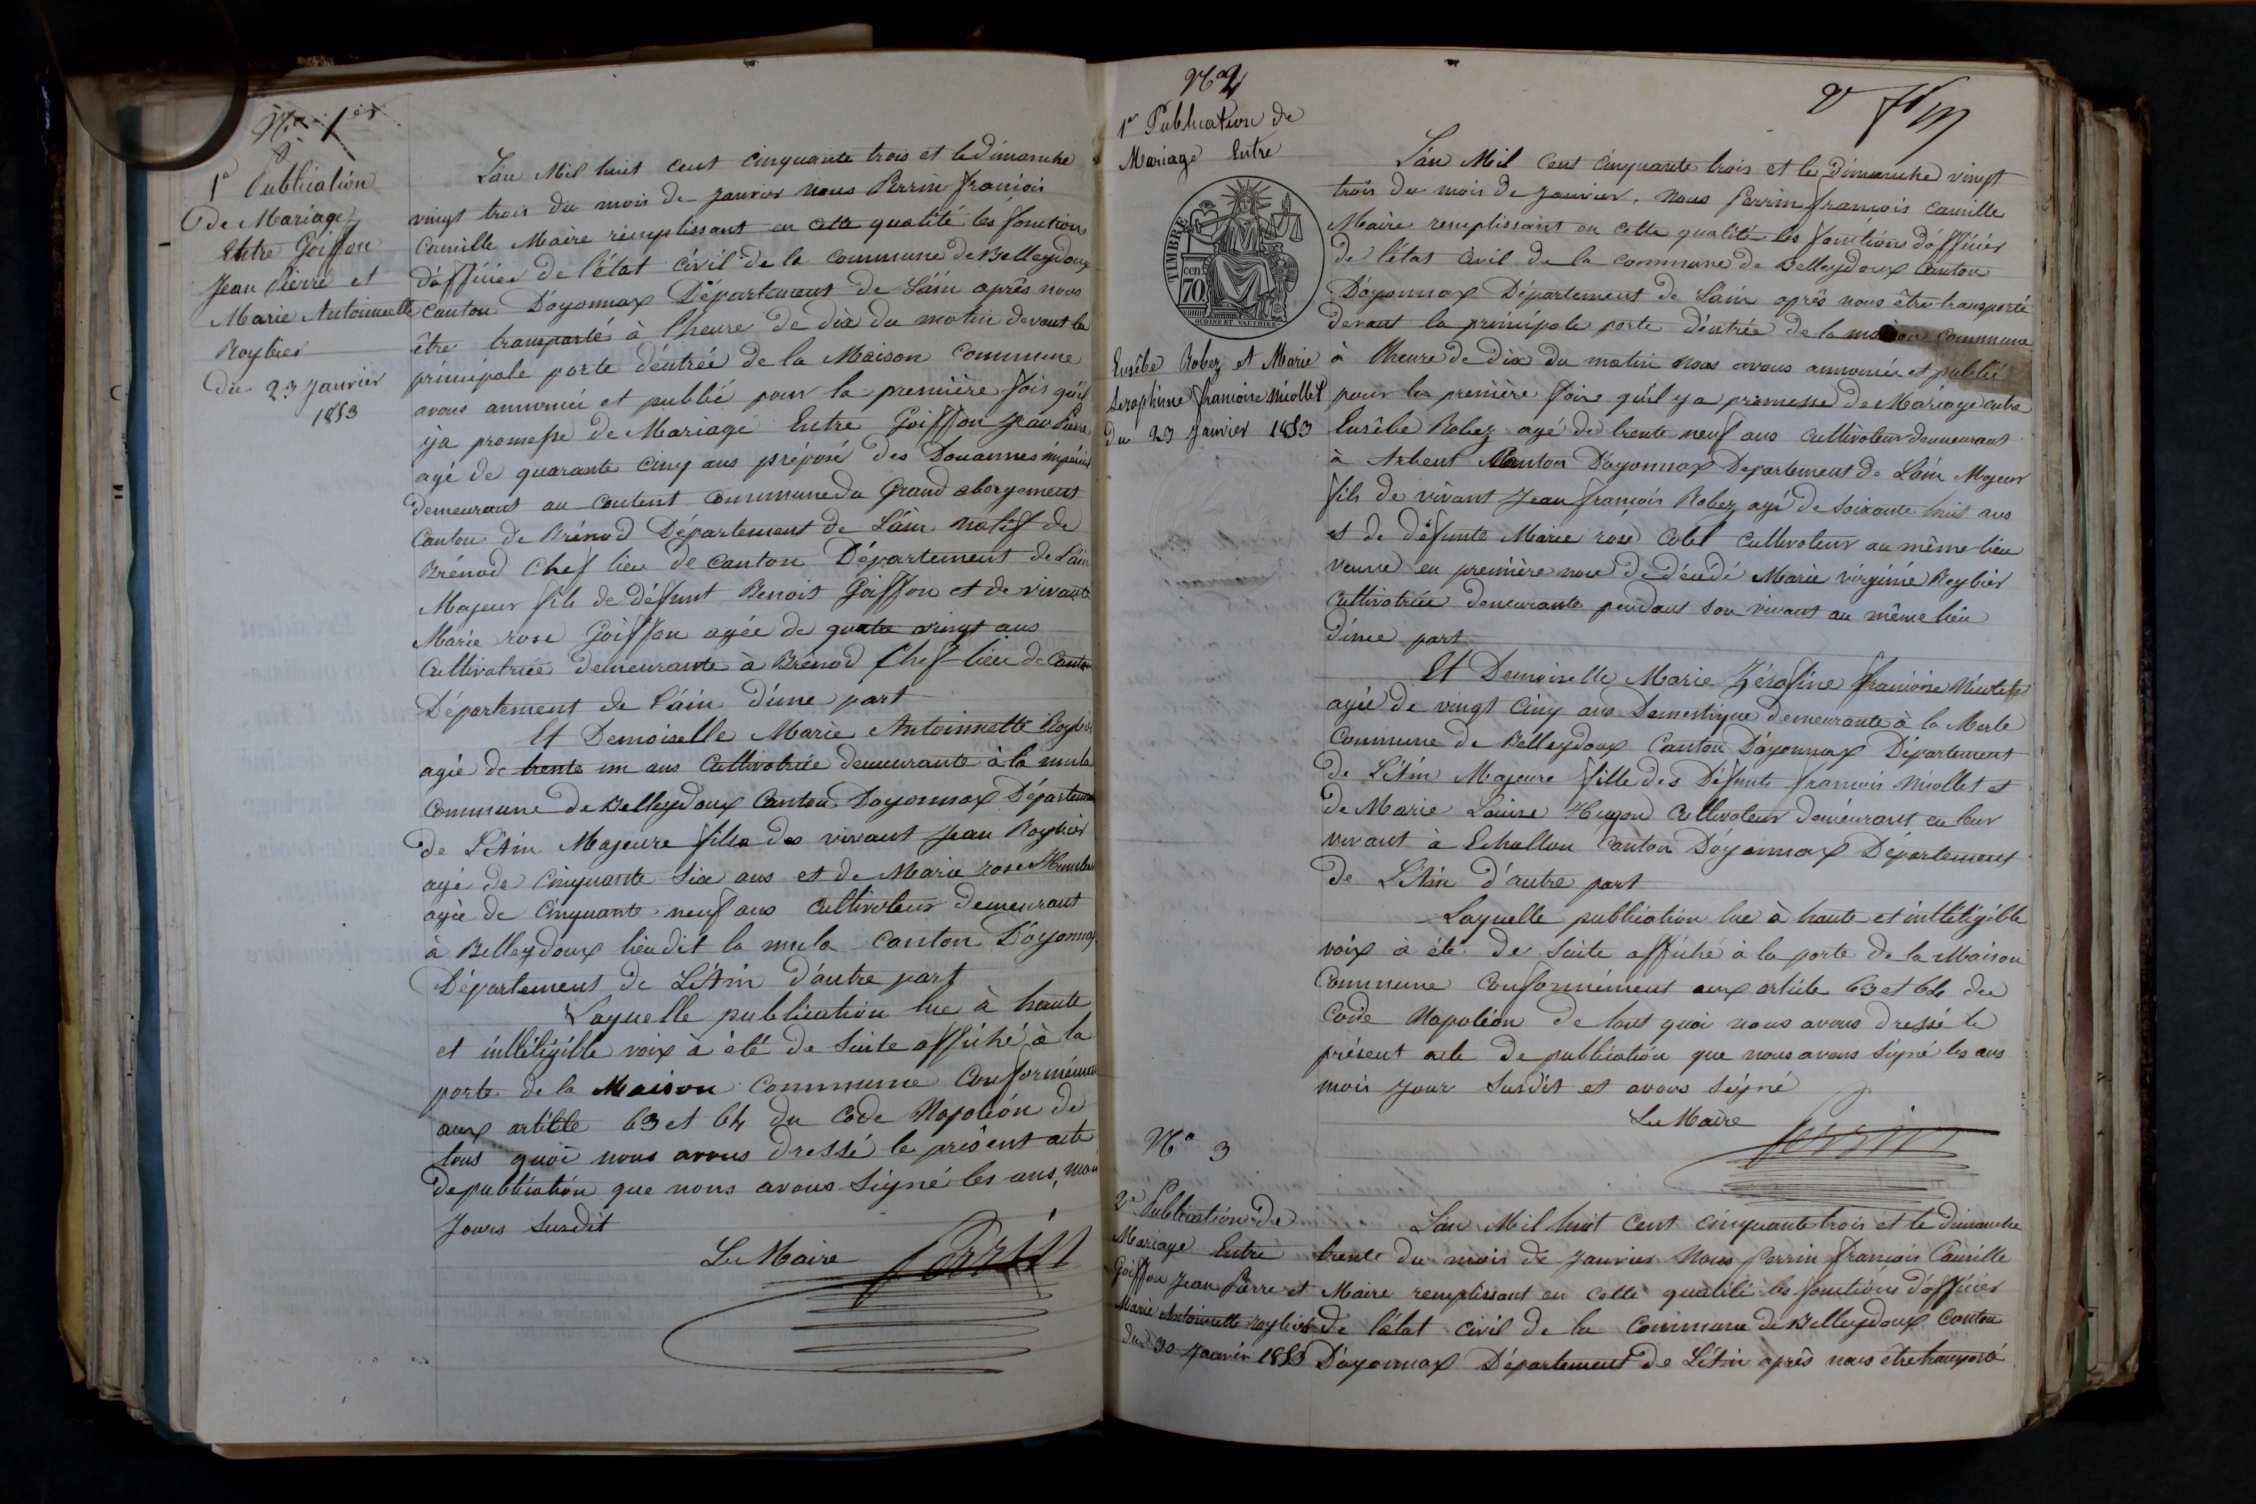 No 1er
1re Publication
de Mariage
Entre Goiffon
Jean Pierre et
Marie Antoinnette
Reybier
du 23 Janvier
1853
L'an Mil huit cent cinquante trois et le dimanche
vingt trois du mois de Janvier nous Perrin françois
Camille Maire remplissant en cette qualité les fonctions
d'officier de l'état civil de la commune de Belleydoux
canton D'oyonnax Département de L'ain après nous
être transporté à l'heure de dix du matin devant la
principale porte d'entrée de la Maison Commune
avons annoncé et publié pour la première fois qu'il
ya promesse de Mariage Entre Goiffon Jean Pierre
agé de quarante cinq ans préposé des Douannes impérial
demeurant au Content Commune du Grand abergement
Canton de Brénod Département de L'ain natif de
Brénod Chef lieu de Canton Département de L'ain
Majeur fils de défunt Benoit Goiffon et de vivante
Marie rose Goiffon agée de quatre vingt ans
Cultivatrice demeurante à Brénod Chef-lieu de Canton
Département de L'ain d'une part
Et Demoiselle Marie Antoinnette Reybier
agée de trente un ans Cultivatrice demeurante à la mula
Commune de Belleydoux Canton Doyonnax Département
de L'Ain Majeure fille des vivant Jean Reybier
agé de Cinquante Six ans et de Marie rose Humbert
agée de Cinquante neuf ans Cultivateur demeurant
à Belleydoux lieu dit la mula canton D'oyonnax
Département de L'Ain d'autre part
Laquelle publication lue à haute
et intiligible voix à été de Suite affiché à la
porte de la Maison Commune Conformément
aux article 63 et 64 du Code Napoléon de
tous quoi nous avons dressé le présent acte
de publication que nous avons Signé les ans, mois
Jours Susdit
Le Maire Perrin
No 2
1re Publication de
Mariage Entre
TIMBRE
70
Eusêbe Robez et Marie
Seraphine françoise Nicollet
du 23 Janvier 1853
L'an Mil Cent Cinquante trois et le dimanche vingt
trois du mois de Janvier, nous Perrin françois Camille
Maire remplissant en cette qualité les fonction d'officier
de l'état Civil de la commune de Belleydoux Canton
D'oyonnax Département de L'ain après nous être transporté
devant la principale porte d'entrée de la maison commune
à l'heure de dix du matin nous avons annoncé et publié
pour la première fois qu'il ya promesse de Mariage entre
Eusêbe Robez agé de trente neuf ans Cultivateur demeurant
à Arbent Canton D'oyonnax Département de L'ain Majeur
fils de vivant Jean françois Robez agé de Soixante huit ans
et de défunte Marie rose Colet Cultivateur au même lieu
veuve en première noce de décédé Marie virginie Reybier
Cultivatrice demeurante pendant son vivant au même lieu
d'une part
Et Demoiselle Marie Zérafine françoise Nicollet
agée de vingt Cinq ans Domestique demeurante à la Mula
Commune de Belleydoux Canton D'oyonnax Département
de L'Ain Majeure fille des Défunts francois Nicollet et
de Marie Louise Hugon Cultivateur demeurant en leur
vivant à Echallon Canton D'oyonnax Département
de L'Ain d'autre part
Laquelle publication lue à haute et intiligible
voix à été de Suite affiché à la porte de la Maison
Commune Conformément aux article 63 et 64 du
Code Napoléon de tout quoi nous avons dressé le
présent acte de publication que nous avons Signé les ans
mois Jour Susdit et avons Signé
Le Maire
Perrin
No 3
2e Publication de
Mariage Entre
Goiffon Jean Pierre et
Marie Antoinnette Reybier
du 30 Janvier 1853
L'an Mil huit Cent cinquante trois et le dimanche
trente du mois de Janvier Nous Perrin françois Camille
Maire remplissant en cette qualité les fonctions d'officier
de l'état Civil de la Commune de Belleydoux Canton
D'oyonnax Département de L'Ain après nous être transporté